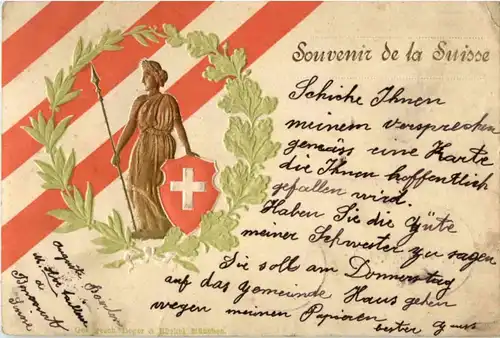 Souvenir de la Suisse
Schicke Ihnen
meinem versprechen
gemäss eine Karte
die Ihnen hoffentlich
gefallen wird.
Haben Sie die Güte
meiner Schwester zu sagen
Sie soll am Donnerstag
auf das Gemeinde Haus gehen
wegen meinen Papieren
bester Gruss
Auguste
a